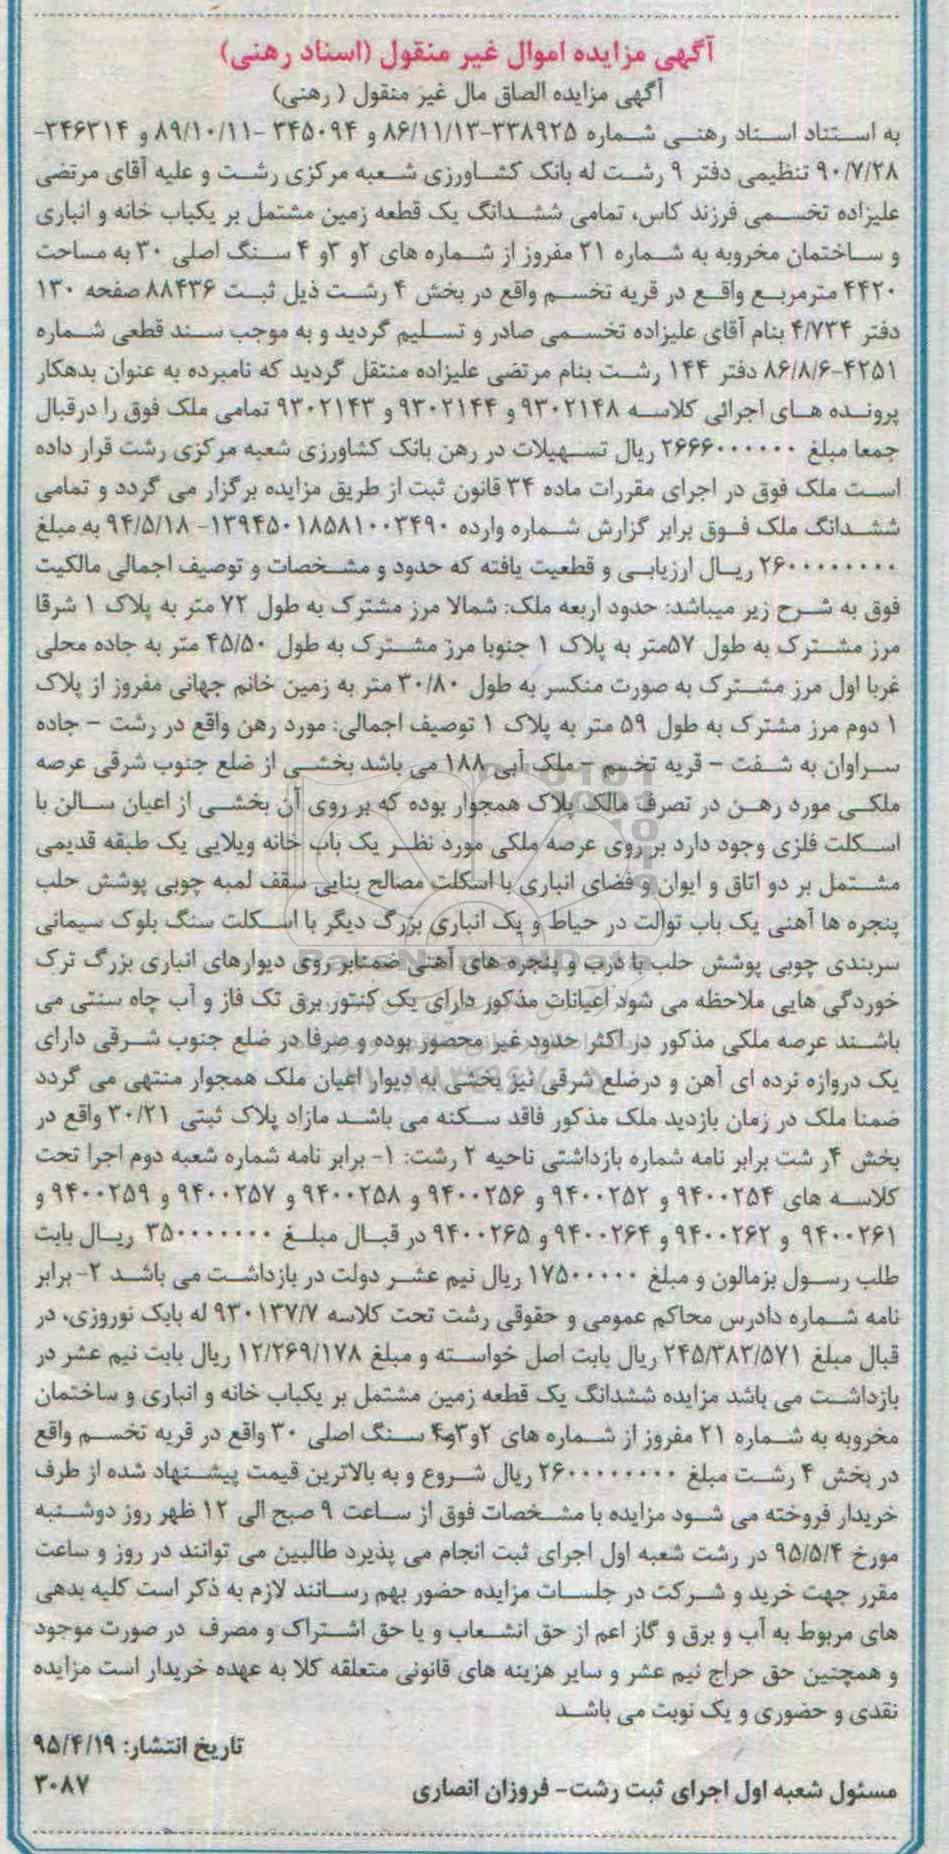 آگهی مزایده اموال غیر منقول (اسناد رهنی)
آگهی مزایده الصاق مال غیر منقول ( رهنی)
به استناد اسناد رهنی شماره ۳۳۸۹۲۵-۸۶/۱۱/۱۳ و ۳۴۵۰۹۴ -۸۹/۱۰/۱۱ و ۳۴۶۳۱۴-
۹۰/۷/۲۸ تنظیمی دفتر ۹ رشت له بانک کشاورزی شعبه مرکزی رشت و علیه آقای مرتضی
علیزاده تخسمی فرزند کاس، تمامی ششدانگ یک قطعه زمین مشتمل بر یکباب خانه و انباری
و ساختمان مخروبه به شماره ۲۱ مفروز از شماره های ۲و ۳و ۴ سنگ اصلی ۳۰ به مساحت
۴۴۲۰ مترمربع واقع در قریه تخسم واقع در بخش ۴ رشت ذیل ثبت ۸۸۴۳۶ صفحه ۱۳۰
دفتر ۴/۷۳۴ بنام آقای علیزاده تخسمی صادر و تسلیم گردید و به موجب سند قطعی شماره
۴۲۵۱-۸۶/۸/۶ دفتر ۱۴۴ رشت بنام مرتضی علیزاده منتقل گردید که نامبرده به عنوان بدهکار
پرونده های اجرائی کلاسه ۹۳۰۲۱۴۸ و ۹۳۰۲۱۴۴ و ۹۳۰۲۱۴۳ تمامی ملک فوق را درقبال
جمعا مبلغ ۲۶۶۶۰۰۰۰۰۰ ریال تسهیلات در رهن بانک کشاورزی شعبه مرکزی رشت قرار داده
است ملک فوق در اجرای مقررات ماده ۳۴ قانون ثبت از طریق مزایده برگزار می گردد و تمامی
ششدانگ ملک فوق برابر گزارش شماره وارده ۱۳۹۴۵۰۱۸۵۸۱۰۰۳۴۹۰- ۹۴/۵/۱۸ به مبلغ
۲۶۰۰۰۰۰۰۰۰ ریال ارزیابی و قطعیت یافته که حدود و مشخصات و توصیف اجمالی مالکیت
فوق به شرح زیر میباشد: حدود اربعه ملک: شمالا مرز مشترک به طول ۷۲ متر به پلاک ۱ شرقا
مرز مشترک به طول ۵۷متر به پلاک ۱ جنوبا مرز مشترک به طول ۴۵/۵۰ متر به جاده محلی
غربا اول مرز مشترک به صورت منکسر به طول ۳۰/۸۰ متر به زمین خانم جهانی مفروز از پلاک
۱ دوم مرز مشترک به طول ۵۹ متر به پلاک ۱ توصیف اجمالی: مورد رهن واقع در رشت – جاده
سراوان به شفت – قریه تخسم – ملک آبی ۱۸۸ می باشد بخشی از ضلع جنوب شرقی عرصه
ملکی مورد رهن در تصرف مالک پلاک همجوار بوده که بر روی آن بخشی از اعیان سالن با
اسکلت فلزی وجود دارد بر روی عرصه ملکی مورد نظر یک باب خانه ویلایی یک طبقه قدیمی
مشتمل بر دو اتاق و ایوان و فضای انباری با اسکلت مصالح بنایی سقف لمبه چوبی پوشش حلب
پنجره ها آهنی یک باب توالت در حیاط و یک انباری بزرگ دیگر با اسکلت سنگ بلوک سیمانی
سربندی چوبی پوشش حلب با درب و پنجره های آهنی ضمنابر روی دیوارهای انباری بزرگ ترک
خوردگی هایی ملاحظه می شود اعیانات مذکور دارای یک کنتور برق تک فاز و آب چاه سنتی می
باشند عرصه ملکی مذکور در اکثر حدود غیر محصور بوده و صرفا در ضلع جنوب شرقی دارای
یک دروازه نرده ای آهن و درضلع شرقی نیز بخشی به دیوار اعیان ملک همجوار منتهی می گردد
ضمنا ملک در زمان بازدید ملک مذکور فاقد سکنه می باشد مازاد پلاک ثبتی ۳۰/۲۱ واقع در
بخش ۴ر شت برابر نامه شماره بازداشتی ناحیه ۲ رشت: ۱- برابر نامه شماره شعبه دوم اجرا تحت
کلاسه های ۹۴۰۰۲۵۴ و ۹۴۰۰۲۵۲ و ۹۴۰۰۲۵۶ و ۹۴۰۰۲۵۸ و ۹۴۰۰۲۵۷ و ۹۴۰۰۲۵۹ و
۹۴۰۰۲۶۱ و ۹۴۰۰۲۶۲ و ۹۴۰۰۲۶۴ و ۹۴۰۰۲۶۵ در قبال مبلغ ۳۵۰۰۰۰۰۰۰ ریال بابت
طلب رسول بزمالون و مبلغ ۱۷۵۰۰۰۰۰ ریال نیم عشر دولت در بازداشت می باشد ۲- برابر
نامه شماره دادرس محاکم عمومی و حقوقی رشت تحت کلاسه ۹۳۰۱۳۷/۷ له بابک نوروزی، در
قبال مبلغ ۲۴۵/۳۸۳/۵۷۱ ریال بابت اصل خواسته و مبلغ ۱۲/۲۶۹/۱۷۸ ریال بابت نیم عشر در
بازداشت می باشد مزایده ششدانگ یک قطعه زمین مشتمل بر یکباب خانه و انباری و ساختمان
مخروبه به شماره ۲۱ مفروز از شماره های ۲و۳و۴ سنگ اصلی ۳۰ واقع در قریه تخسم واقع
در بخش ۴ رشت مبلغ ۲۶۰۰۰۰۰۰۰۰ ریال شروع و به بالاترین قیمت پیشنهاد شده از طرف
خریدار فروخته می شود مزایده با مشخصات فوق از ساعت ۹ صبح الی ۱۲ ظهر روز دوشنبه
مورخ ۹۵/۵/۴ در رشت شعبه اول اجرای ثبت انجام می پذیرد طالبین می توانند در روز و ساعت
مقرر جهت خرید و شرکت در جلسات مزایده حضور بهم رسانند لازم به ذکر است کلیه بدهی
های مربوط به آب و برق و گاز اعم از حق انشعاب و یا حق اشتراک و مصرف در صورت موجود
و همچنین حق حراج نیم عشر و سایر هزینه های قانونی متعلقه کلا به عهده خریدار است مزایده
نقدی و حضوری و یک نوبت می باشد
تاریخ انتشار: ۹۵/۴/۱۹
مسئول شعبه اول اجرای ثبت رشت- فروزان انصاری
۳۰۸۷